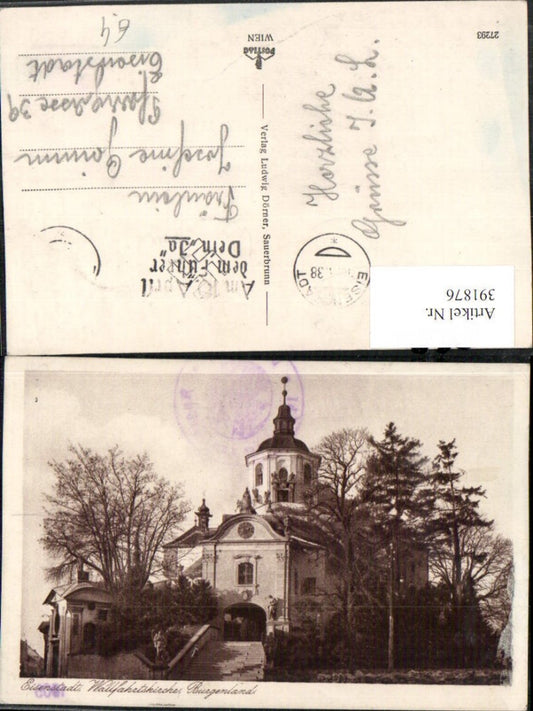 27293
POSTIAG
WIEN
Verlag Ludwig Dörner, Sauerbrunn
Fräulein
Josefine Grimm
Pfarrgasse 39
Eisenstadt
6.4
Am 10. April
dem Führer
Dein „Ja"
EISENSTADT
38
Herzliche
Grüsse J. u. L.
Artikel Nr.
391876
Eisenstadt, Wallfahrtskirche, Burgenland.